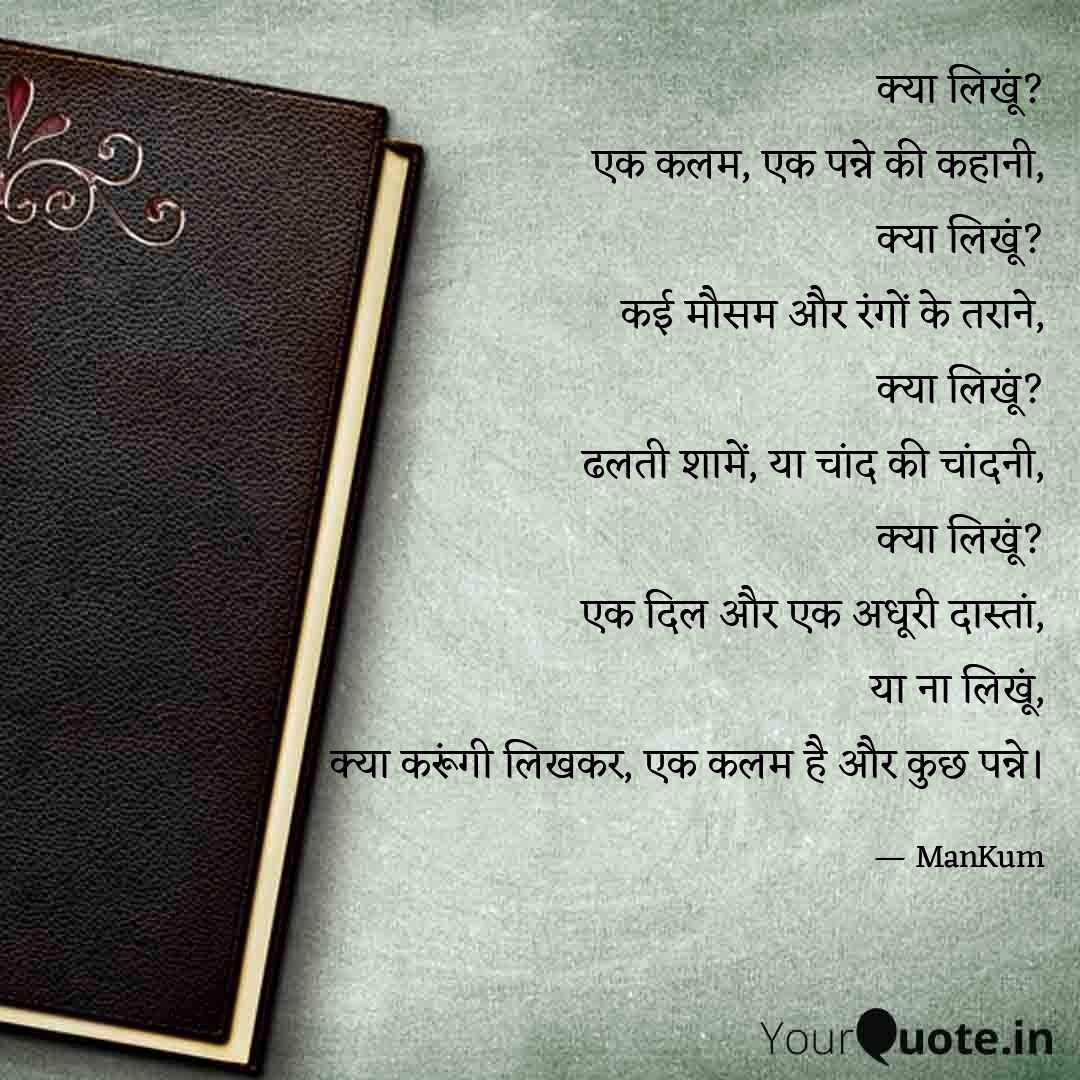 क्या लिखूं?
एक कलम, एक पन्ने की कहानी,
क्या लिखूं?
कई मौसम और रंगों के तराने,
क्या लिखूं?
ढलती शामें, या चांद की चांदनी,
क्या लिखूं?
एक दिल और एक अधूरी दास्तां,
या ना लिखूं,
क्या करूंगी लिखकर, एक कलम है और कुछ पन्ने।
— ManKum
YourQuote.in